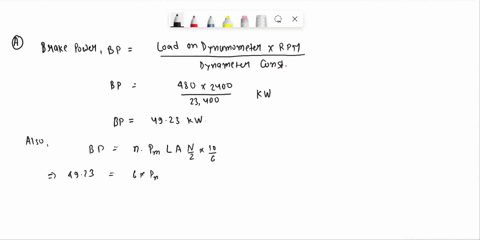 A Brake Power, BP = Load on Dynamometer × RPM
Dynameter Const.
BP = 480 × 2400
23,400 KW
BP = 49.23 KW.
Also,
BP = n. Pm L A N/2 × 10/6
⇒ 49.23 = 6 × Pm